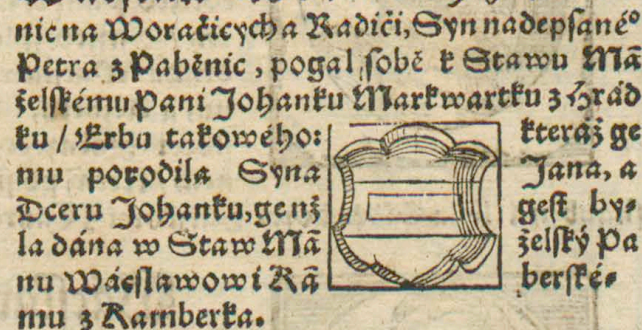 nic na Woračicých a Radiči, Syn nadepsanéº
Petra z Paběnic, pogal sobě k Stawu Mã
želſkému Pani Johanku Markwartku z Hrád
ku / Erbu takowého: kteráž ge
mu porodila Syna Jana, a
Dceru Johanku, genž geſt by⸗
la dána w Staw Mã želſký Pa
nu Wácſlawowi Rã berſké⸗
mu z Ramberka.